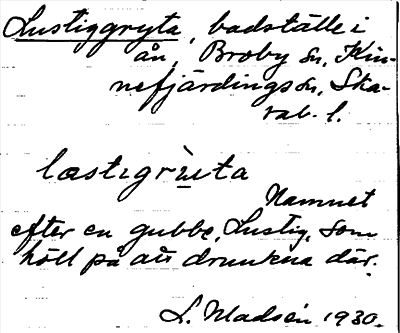 Lustiggryta, badställe i
ån, Broby sn, Kin-
nefjärdings hd, Ska-
rab. l.
læstıgrùıta
Namnet
efter en gubbe, Lustig, som
höll på att drunkna där.
L. Madsén 1930.